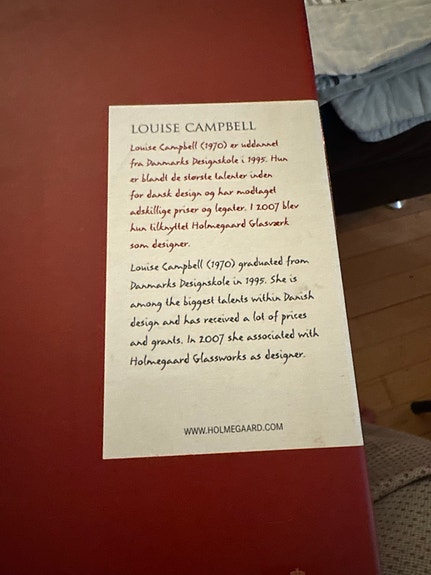 LOUISE CAMPBELL
Louise Campbell (1970) er uddannet
fra Danmarks Designskole i 1995. Hun
er blandt de største talenter inden
for dansk design og har modtaget
adskillige priser og legater. I 2007 blev
hun tilknyttet Holmegaard Glasværk
som designer.
Louise Campbell (1970) graduated from
Danmarks Designskole in 1995. She is
among the biggest talents within Danish
design and has received a lot of prices
and grants. In 2007 she associated with
Holmegaard Glassworks as designer.
WWW.HOLMEGAARD.COM